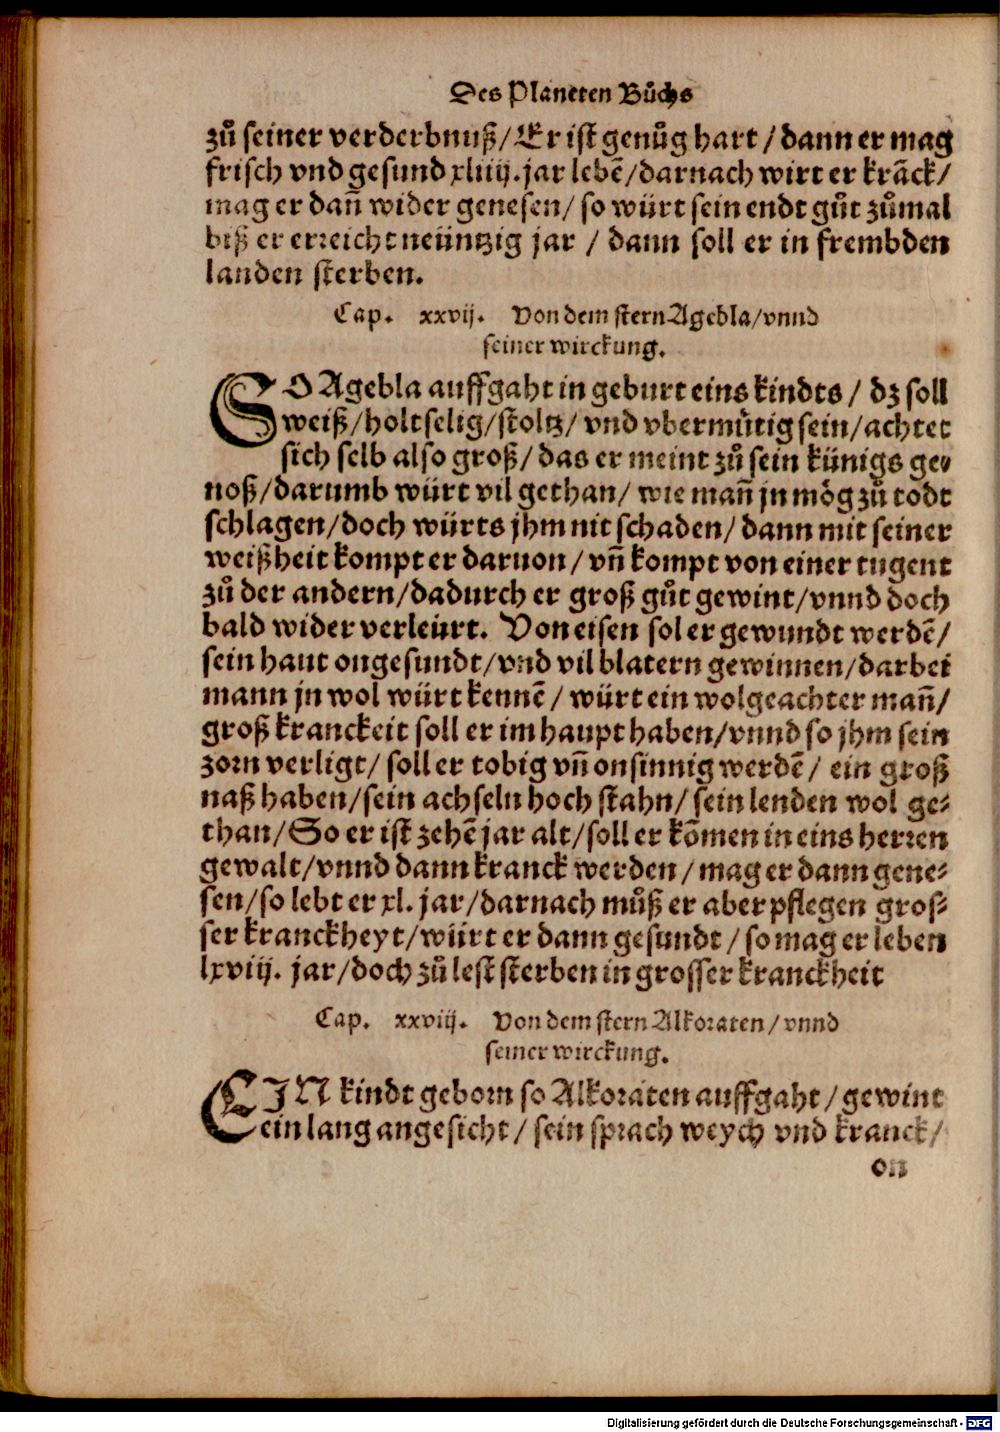 Des Planeten Bůchs
zů seiner verderbnuß/Er ist genůg hart / dann er mag
frisch vnd gesund xliiij. jar lebē/darnach wirt er krāck/
mag er dañ wider genesen/ so würt sein endt gůt zůmal
biß er erreicht neüntzig jar / dann soll er in frembden
landen sterben.
Cap. xxvij. Von dem stern Agebla/vnnd
seiner wirckung.
SO Agebla auffgaht in geburt eins kindts / dz soll
weiß/holtselig/stoltz/ vnd vbermůtig sein/achtet
sich selb also groß/ das er meint zů sein künigs ge-
noß/darumb würt vil gethan/ wie mañ jn mög zů todt
schlagen/doch würts jhm nit schaden/ dann mit seiner
weißheit kompt er daruon/ vñ kompt von einer tugent
zů der andern/dadurch er groß gůt gewint/vnnd doch
bald wider verleürt. Von eisen sol er gewundt werdē/
sein haut ongesundt/vnd vil blatern gewinnen/darbei
mann jn wol würt kennē/ würt ein wolgeachter mañ/
groß kranckeit soll er im haupt haben/vnnd so jhm sein
zorn verligt/ soll er tobig vñ onsinnig werdē/ ein groß
naß haben/sein achseln hoch stahn/ sein lenden wol ge-
than/So er ist zehē jar alt/soll er kōmen in eins herren
gewalt/vnnd dann kranck werden/ mag er dann gene-
sen/so lebt er xl. jar/darnach můß er aber pflegen gros-
ser kranckheyt/würt er dann gesundt / so mag er leben
lxviij. jar/doch zů lest sterben in grosser kranckheit
Cap. xxviij. Von dem stern Alkoraten/vnnd
seiner wirckung.
EIN kindt geborn so Alkoraten auffgaht/gewint
ein lang angesicht/ sein sprach weych vnd kranck/
on
Digitalisierung gefördert durch die Deutsche Forschungsgemeinschaft - DFG